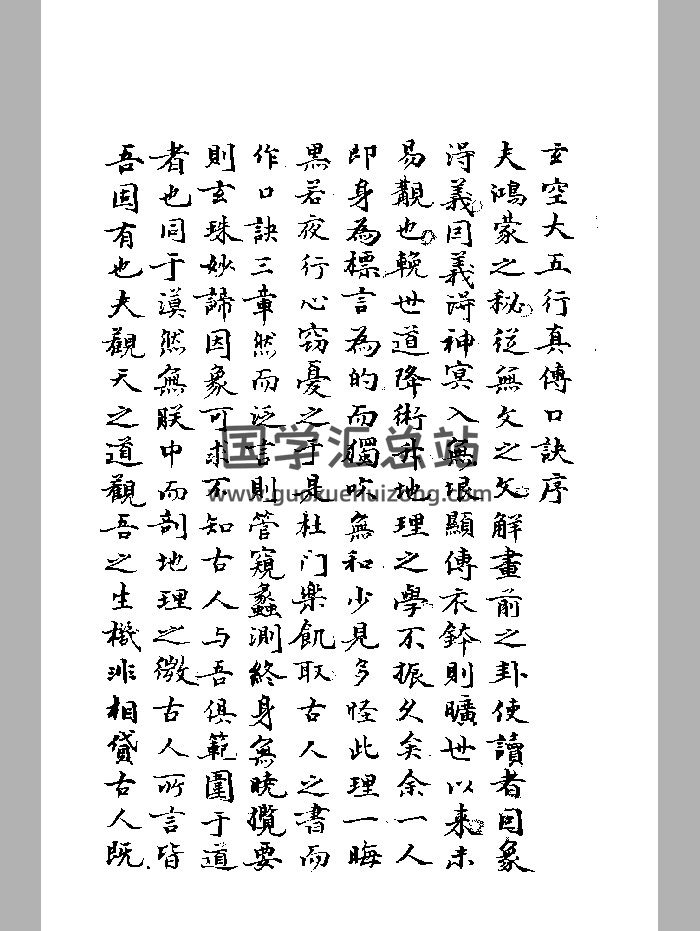 玄空大五行真傳口訣序
夫鴻蒙之秘從無文之文解畫前之卦使讀者因象
淂義因義淂神冥入無垠顯傳衣鉢則曠世以來未
易覯也輓世道降術升地理之學不振久矣余一人
即身為標言為的而獨吹無和少見多怪此理一晦
黑若夜行心竊憂之于是杜門樂飢取古人之書而
作口訣三章然而泛言則管窺蠡測終身無曉攬要
則玄珠妙諦因象可求不知古人与吾俱範圍于道
者也同于漠然無朕中而剖地理之微古人所言皆
吾固有也夫觀天之道觀吾之生機非相貸古人既
国学汇总站
www.guoxuehuizong.com